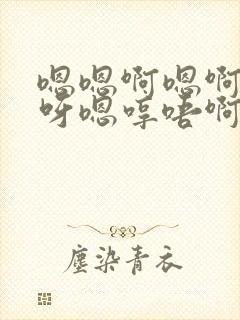 嗯嗯啊嗯啊
呀嗯哼唔啊
塵染青衣